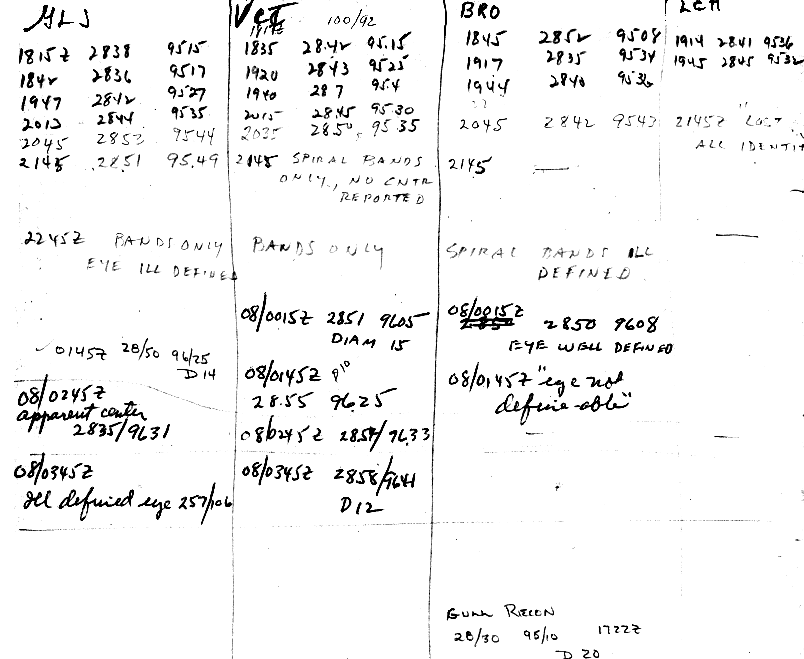 GLS
1815Z 2838 9515
1842 2836 9517
1947 2842 9527
2013 2844 9535
2045 2853 9544
2145 2851 95.49
2245Z BANDS ONLY
EYE ILL DEFINED
0145Z 28/50 96/25
D 14
08/0245Z
apparent center
2835/9631
08/0345Z
Ill defined eye 257/106
VCT 100/92
1835 28.42 95.15
1920 2843 9525
1940 287 954
2015 28.45 95.30
2035 2850 95.35
2145 SPIRAL BANDS
ONLY, NO CNTR
REPORTED
BANDS ONLY
08/0015Z 2851 9605
DIAM 15
08/0145Z D10
28.55 96.25
08/0245Z 2857/9633
08/0345Z 2858/9641
D12
BRO
1845 2852 9508
1917 2835 9534
1944 2840 9536
2045 2842 9543
2145 —
SPIRAL BANDS ILL
DEFINED
08/0015Z
2850 9608
EYE WELL DEFINED
08/0145Z "eye not
define-able"
GUNN RECON
28/30 95/10 1722Z
D 20
LCH
1914 2841 9536
1945 2845 9532
2145Z "LOST
ALL IDENTIT